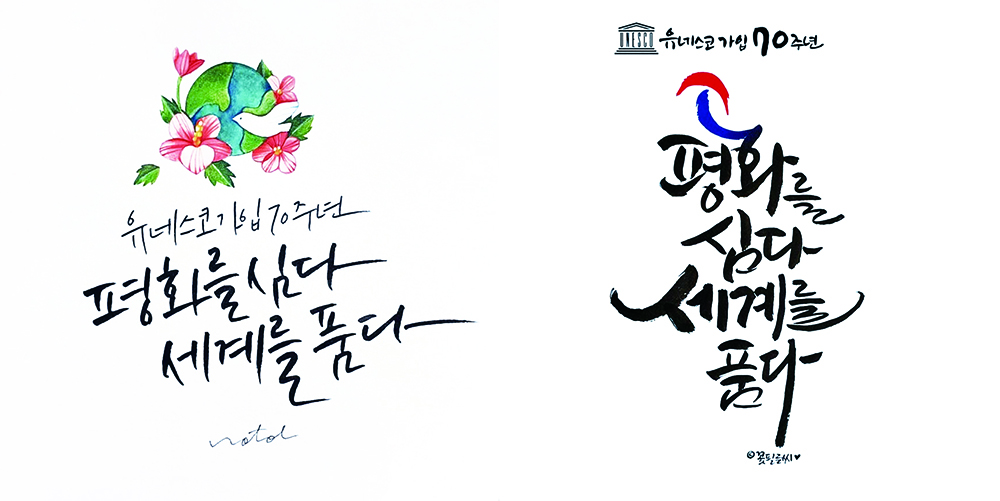 유네스코 가입 70주년
평화를 심다
세계를 품다
UNESCO
유네스코 가입 70주년
평화를
심다
세계를
품다